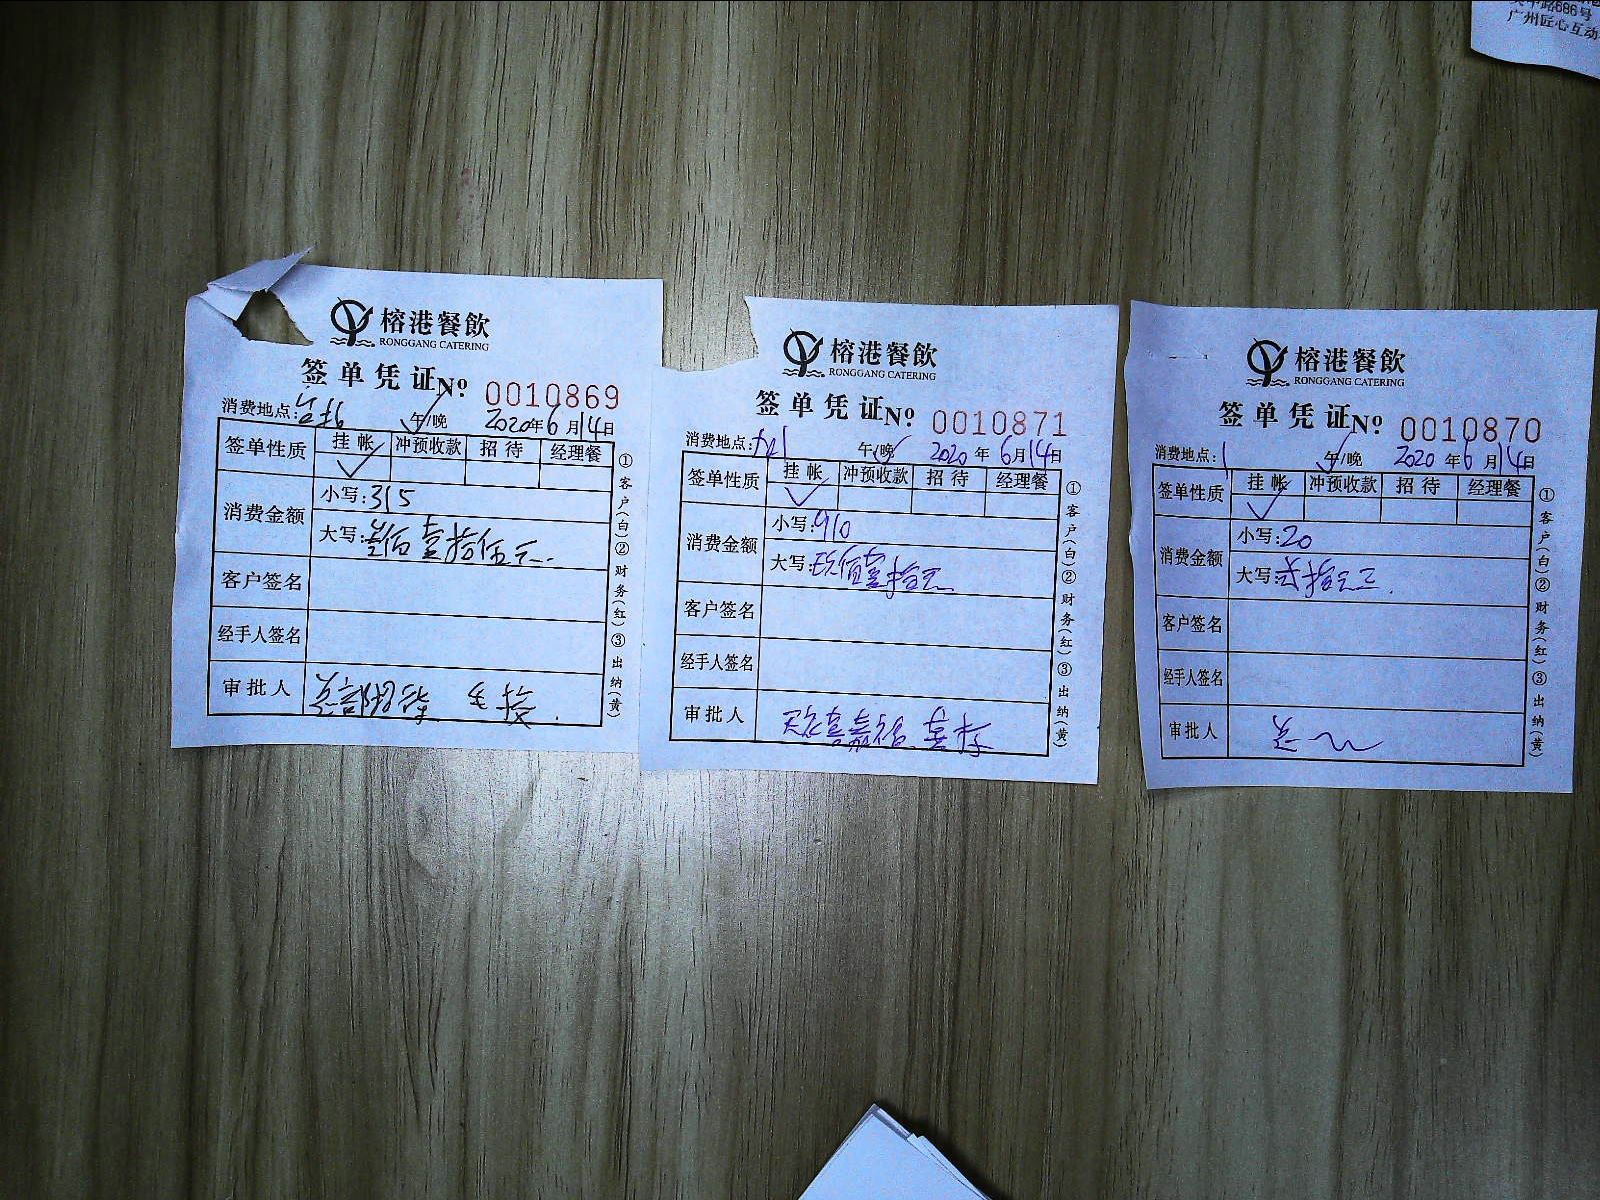 关中路686号
广州匠心互动
榕港餐飲
RONGGANG CATERING
签单凭证 Nº 0010869
消费地点: 午/晚 2020年6月14日
签单性质 挂帐 冲预收款 招待 经理餐
消费金额 小写:315
大写:叁佰壹拾伍元
客户签名
经手人签名
审批人
①客户(白)②财务(红)③出纳(黄)
榕港餐飲
RONGGANG CATERING
签单凭证 Nº 0010871
消费地点: 午/晚 2020年6月14日
签单性质 挂帐 冲预收款 招待 经理餐
消费金额 小写:910
大写:玖佰壹拾元
客户签名
经手人签名
审批人
①客户(白)②财务(红)③出纳(黄)
榕港餐飲
RONGGANG CATERING
签单凭证 Nº 0010870
消费地点:1 午/晚 2020年6月14日
签单性质 挂帐 冲预收款 招待 经理餐
消费金额 小写:20
大写:贰拾元正
客户签名
经手人签名
审批人
①客户(白)②财务(红)③出纳(黄)